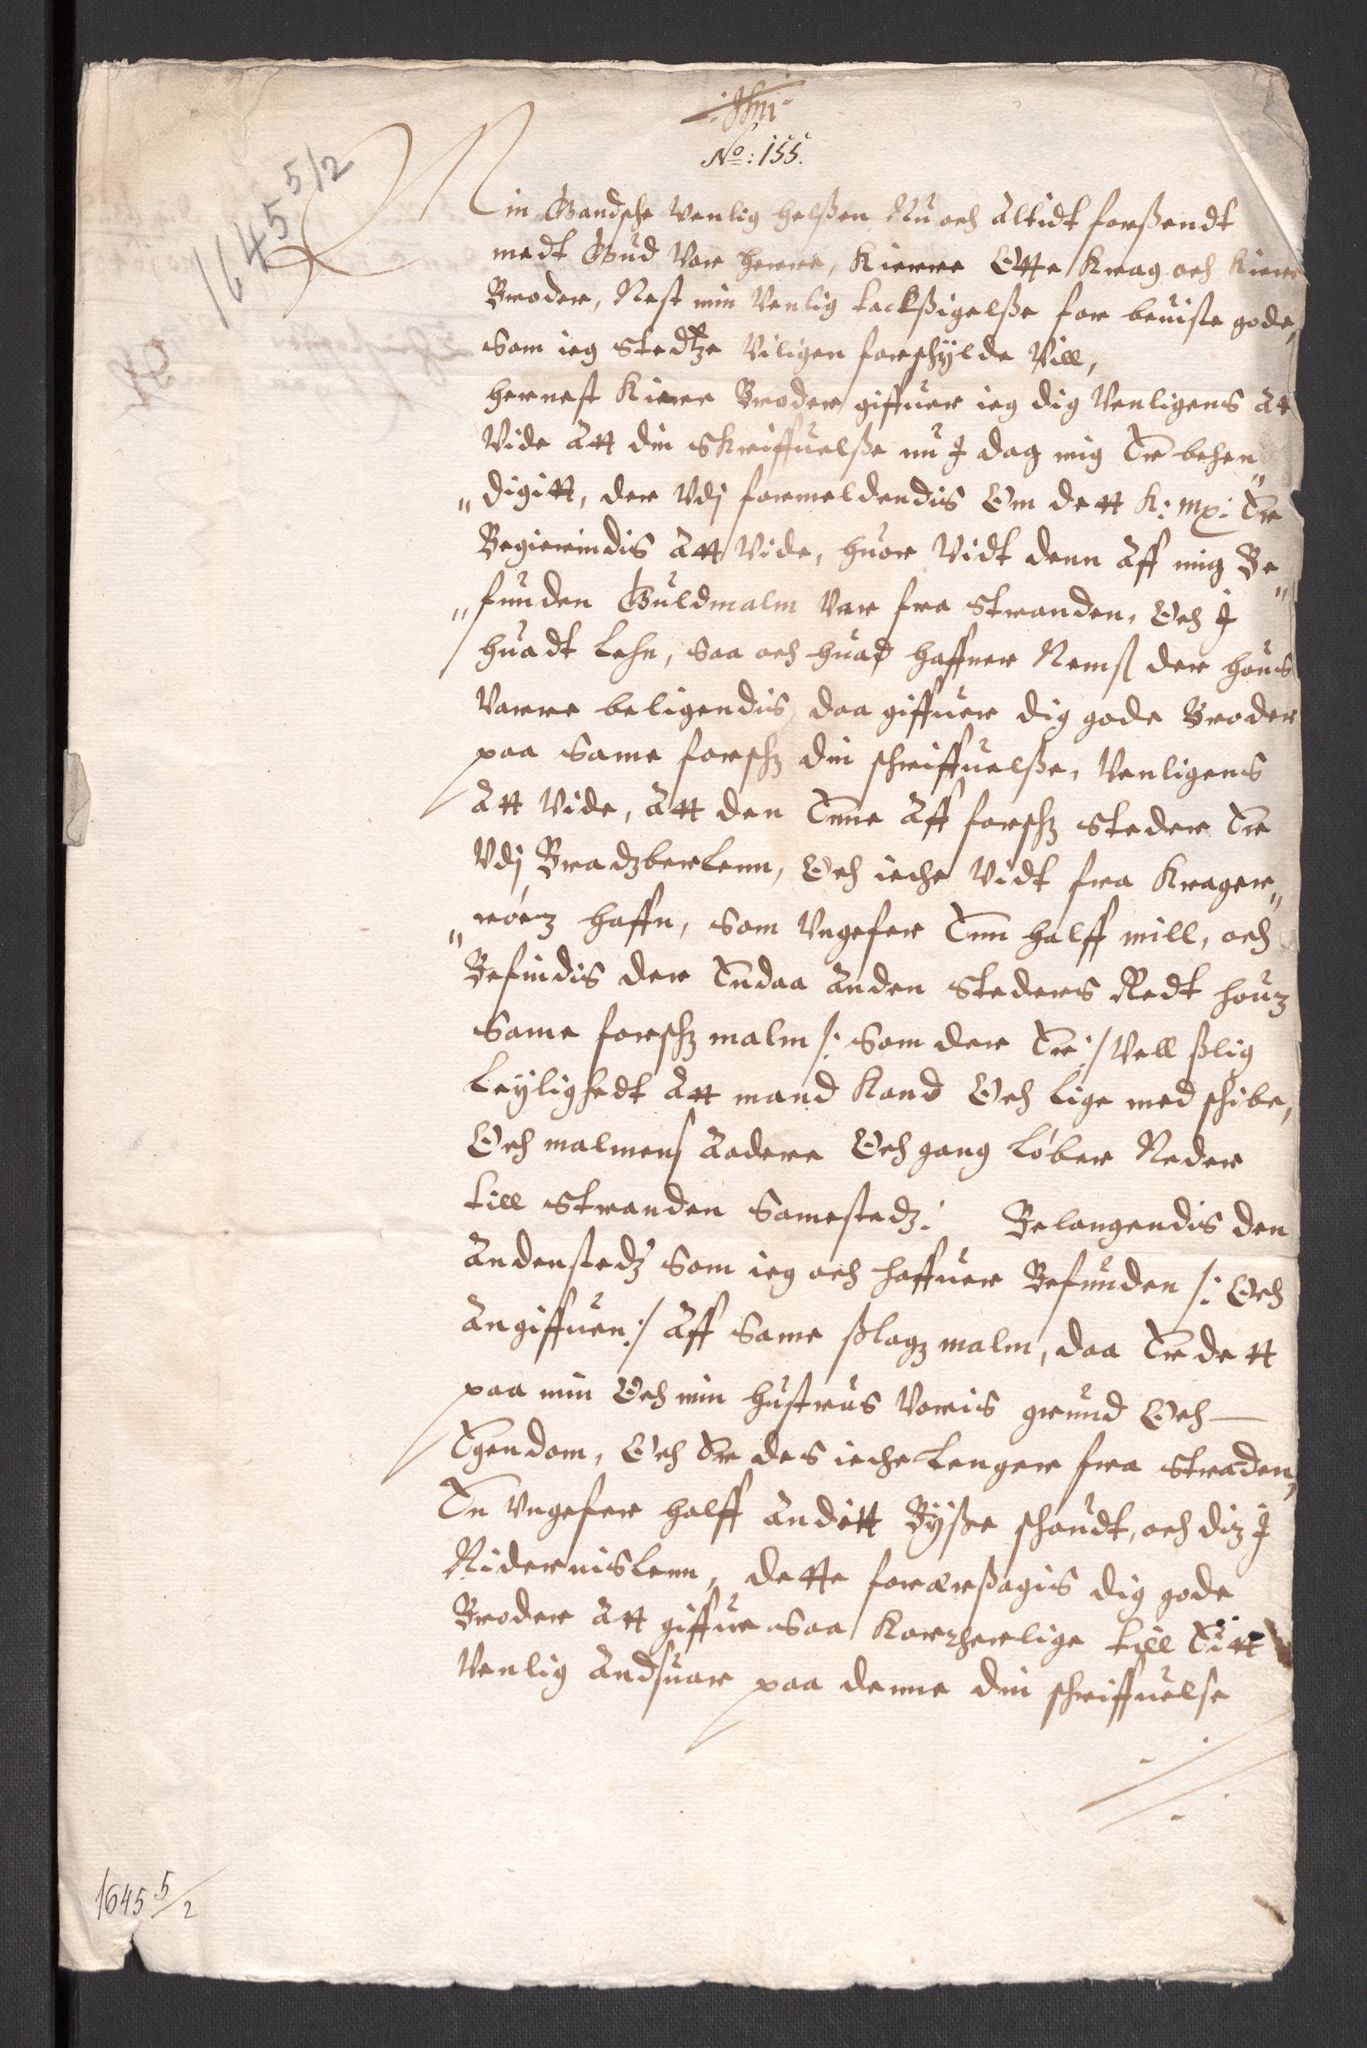 No: 155.
1645 5/2
Min Gandsche Venlig helßen Nu och Altidt forßendt
medt Gud Vor Herre, Kierre Otte Krag och Kiere
Broder, Nest min Venlig tackßigelße for beuiste gode,
Som ieg Stedtze Viligen forschylde Vill,
hernest Kiere Broder giffuer ieg dig Venligens Att
Vide Att din Skriffuelße nu J dag mig Er behen„
„digitt, der Vdj formeldendis Om dett K: Mx: Er
Begierindis Att Vide, huor Vidt denn Aff mig Be„
„funden Guldmalm Var fra Stranden, Och J
huadt Lehn, Saa och huad haffner Nemst der hous
Varre beligendis, daa giffuer dig gode Broder
paa Same forschz din schriffuelße, Venligens
Att Vide, Att den Enne Aff forschz Steder Er
Vdj Bradzberlenn, Och iche Vidt fra Krager„
„röez haffn, Som Vngefer Enn halff mill, och
Befindis der Endaa Anden Steders Redt houz
Same forschz malm /: Som der Er :/ Vell ßlig
Leylighedt Att mand Kand Och lige med schibe,
Och malmens Aadere Och gang Löber Neder
till Stranden Samestedz: Belangendis den
Andenstedz Som ieg och haffuer Befunden /: Och
Angiffuen :/ Aff Same ßlagz malm, daa Er dett
paa min Och min Hustrus Voris grund Och
Egendom, Och Er des iche Lenger fra Straden,
En Vngefer halff Anditt Byße schoudt, och diz J
Nidernislenn, dette foraarßagis dig gode
Broder Att giffue Saa Korzherlige till Eitt
Venlig Andsuar paa denne din schriffuelse
1645 5/2